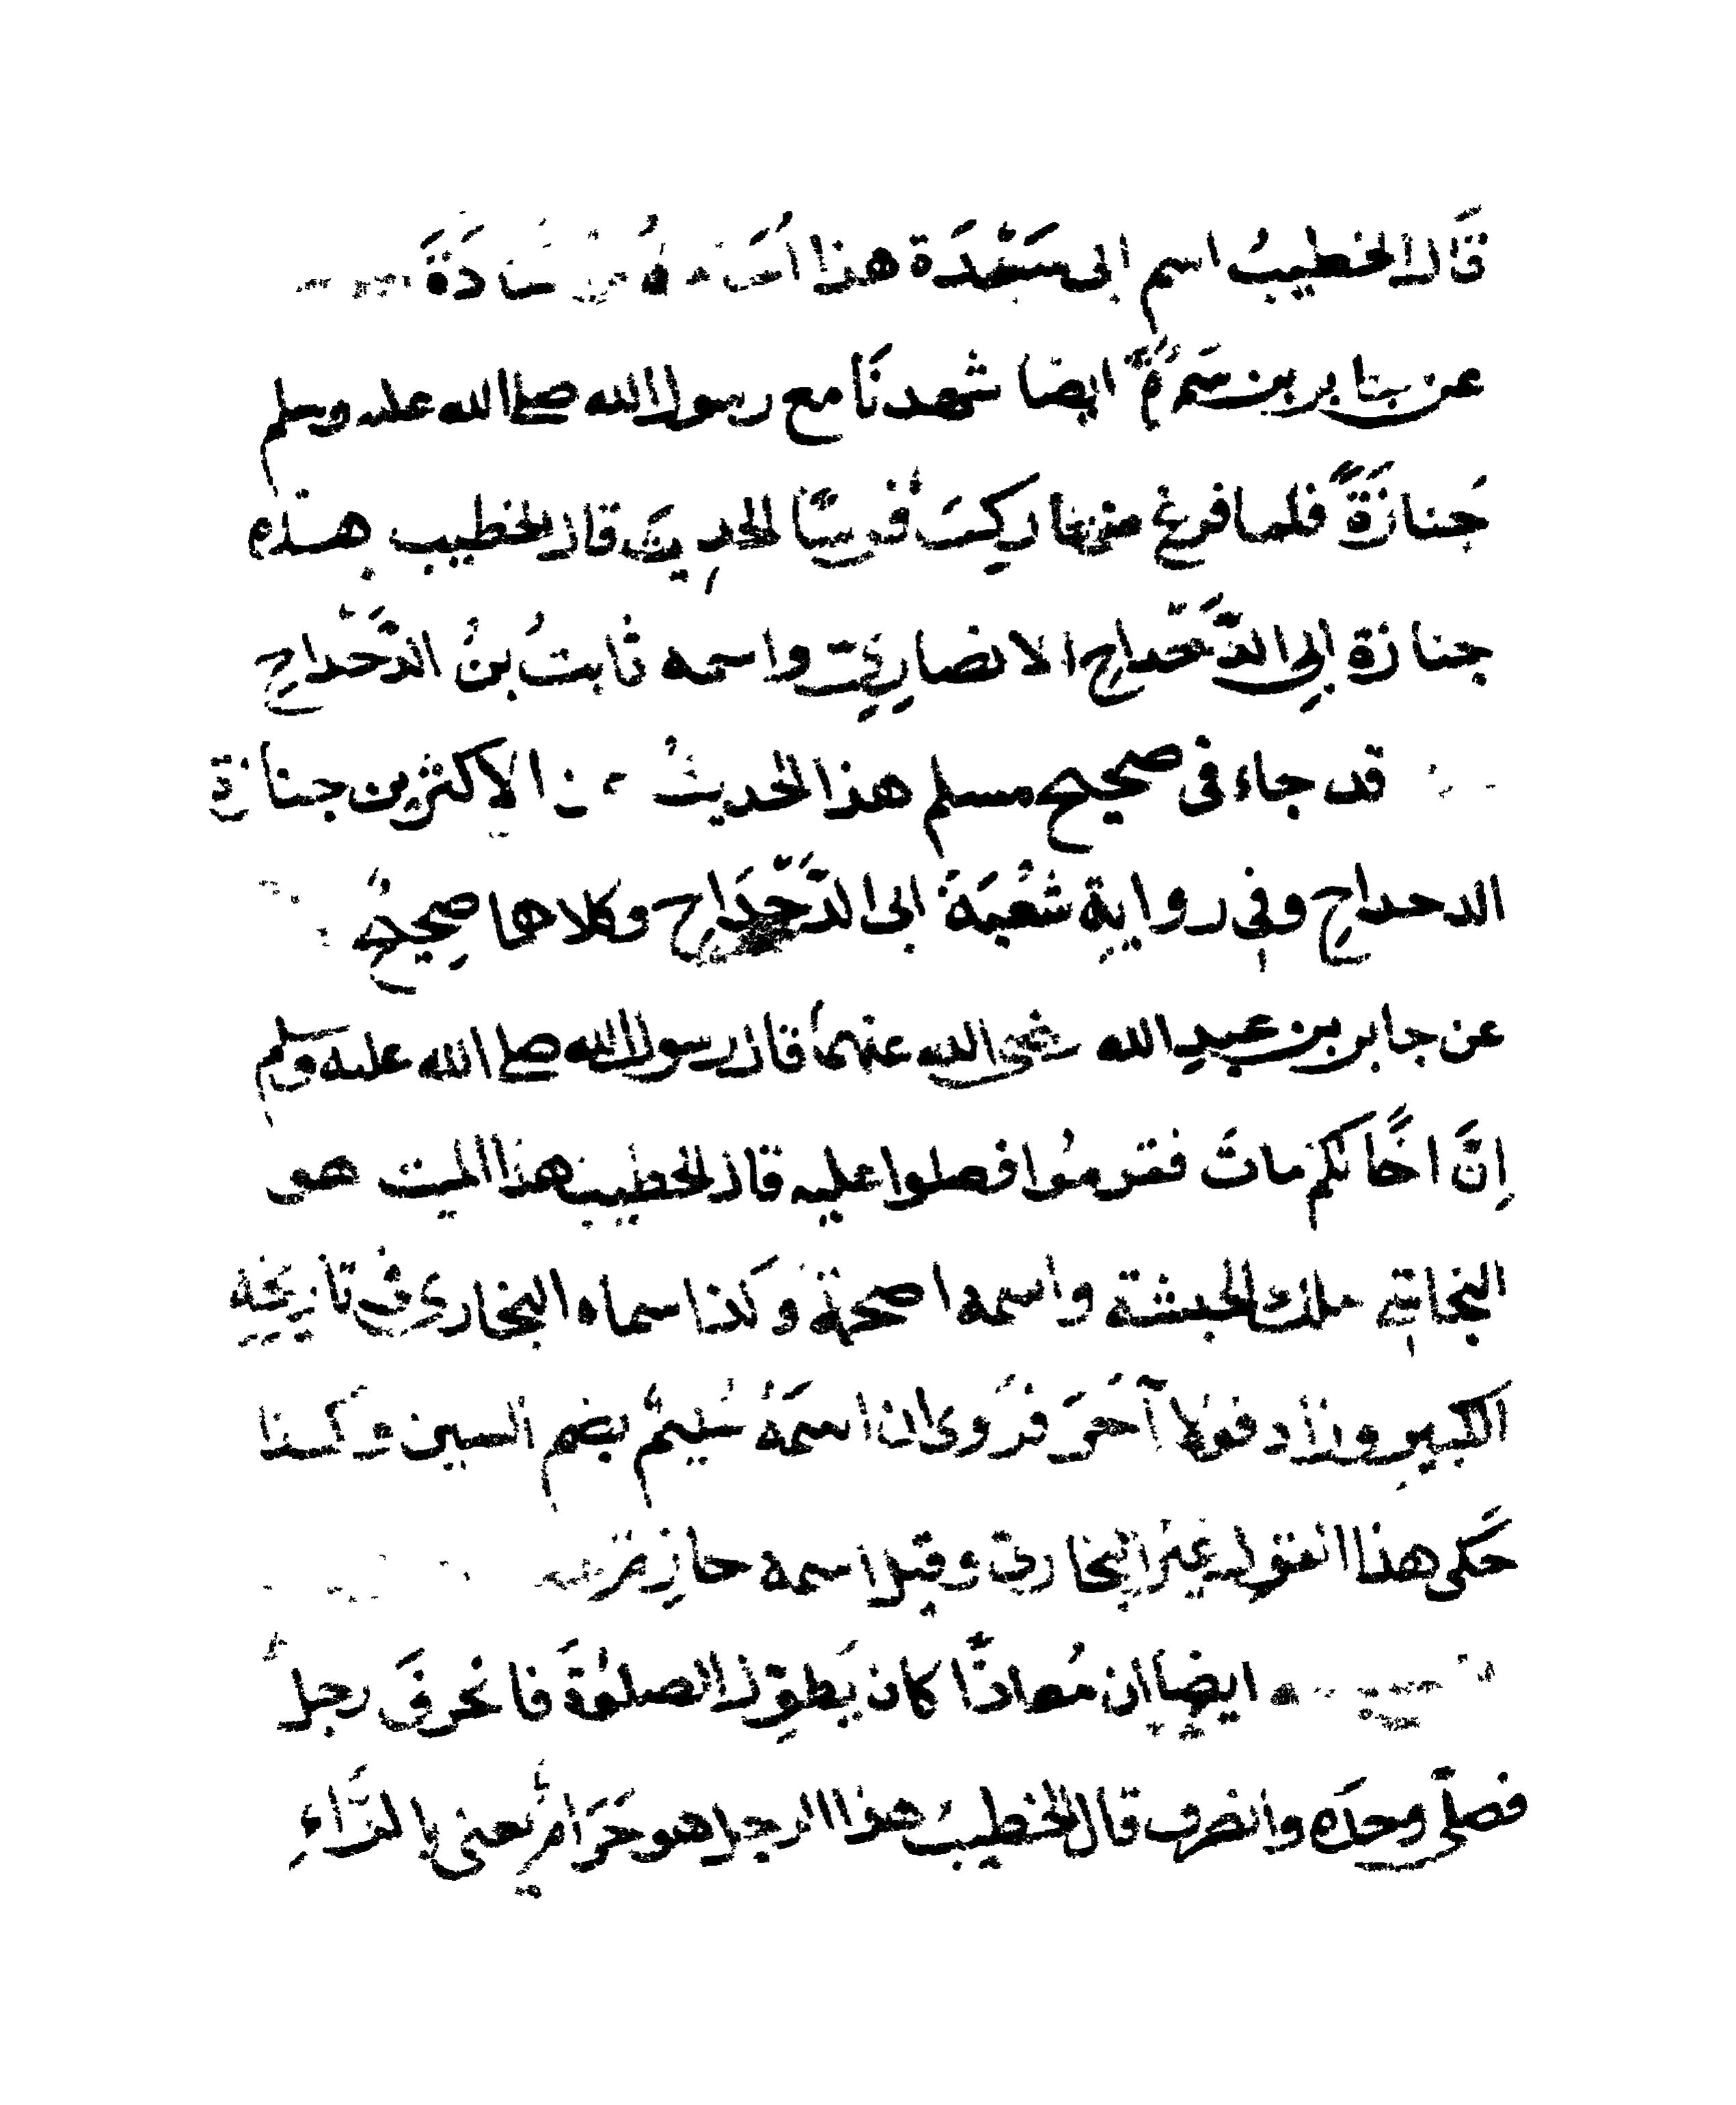 قَال الخطيبُ اسم ابى سَجْدَة هذا
عن جابر بن سَمُرَةَ ايضا شهدنَا مع رسول الله صلى الله عليه وسلم
جَنازَةً فلما فرغ منها ركِبَ فرسًا الحديثَ قال الخطيب هذه
جنازة ابِى الدَّحْداحِ الانصارِيِّ واسمه ثابتُ بنُ الدَّحْداحِ
قد جاء فى صحيح مسلم هذا الحديثُ عن الاكثرِين جنازة
الدحداحِ وفِى روايةِ شُعْبَةَ ابى الدَّحْدَاحِ وكلاهما صحِيحٌ
عن جابر بن عبدِ الله رضى الله عنهمَا قال رسول الله صلى الله عليه وسلم
اِنَّ اخًا لكم ماتَ فقومُوا فصلوا عليه قال الخطيب هذا الميت هو
النجاشِى ملك الحبشة واسمه اصحمَة وكَذا سماه البخارى فى تاريخِهِ
الكبيرِ وزاد قولا آخَرَ فرُوِىَ ان اسمَهُ سُلَيْم بضم السين وكَذا
حَكى هذا القول غيْر البخارىّ وقيل اسمه حازِم
ايضا ان مُعاذًا كان يَطوِّل الصلوٰةَ فانحرفَ رجلٌ
فصلّى وحدَه وانصرف قال الخطيبُ هذا الرجل هو حَرَامٌ يعنى بِالرَّاءِ